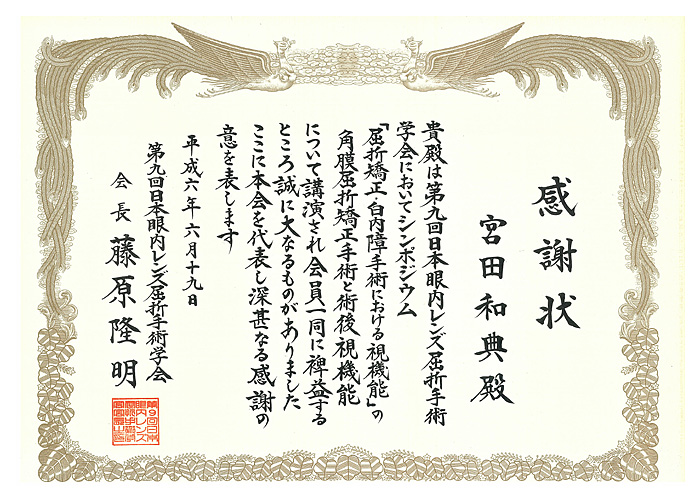 感謝状
宮田和典殿
貴殿は第九回日本眼内レンズ屈折手術
学会においてシンポジウム
「屈折矯正・白内障手術における視機能」の
角膜屈折矯正手術と術後視機能
について講演され会員一同に裨益する
ところ誠に大なるものがありました
ここに本会を代表し深甚なる感謝の
意を表します
平成六年六月十九日
第九回日本眼内レンズ屈折手術学会
会長 藤原隆明